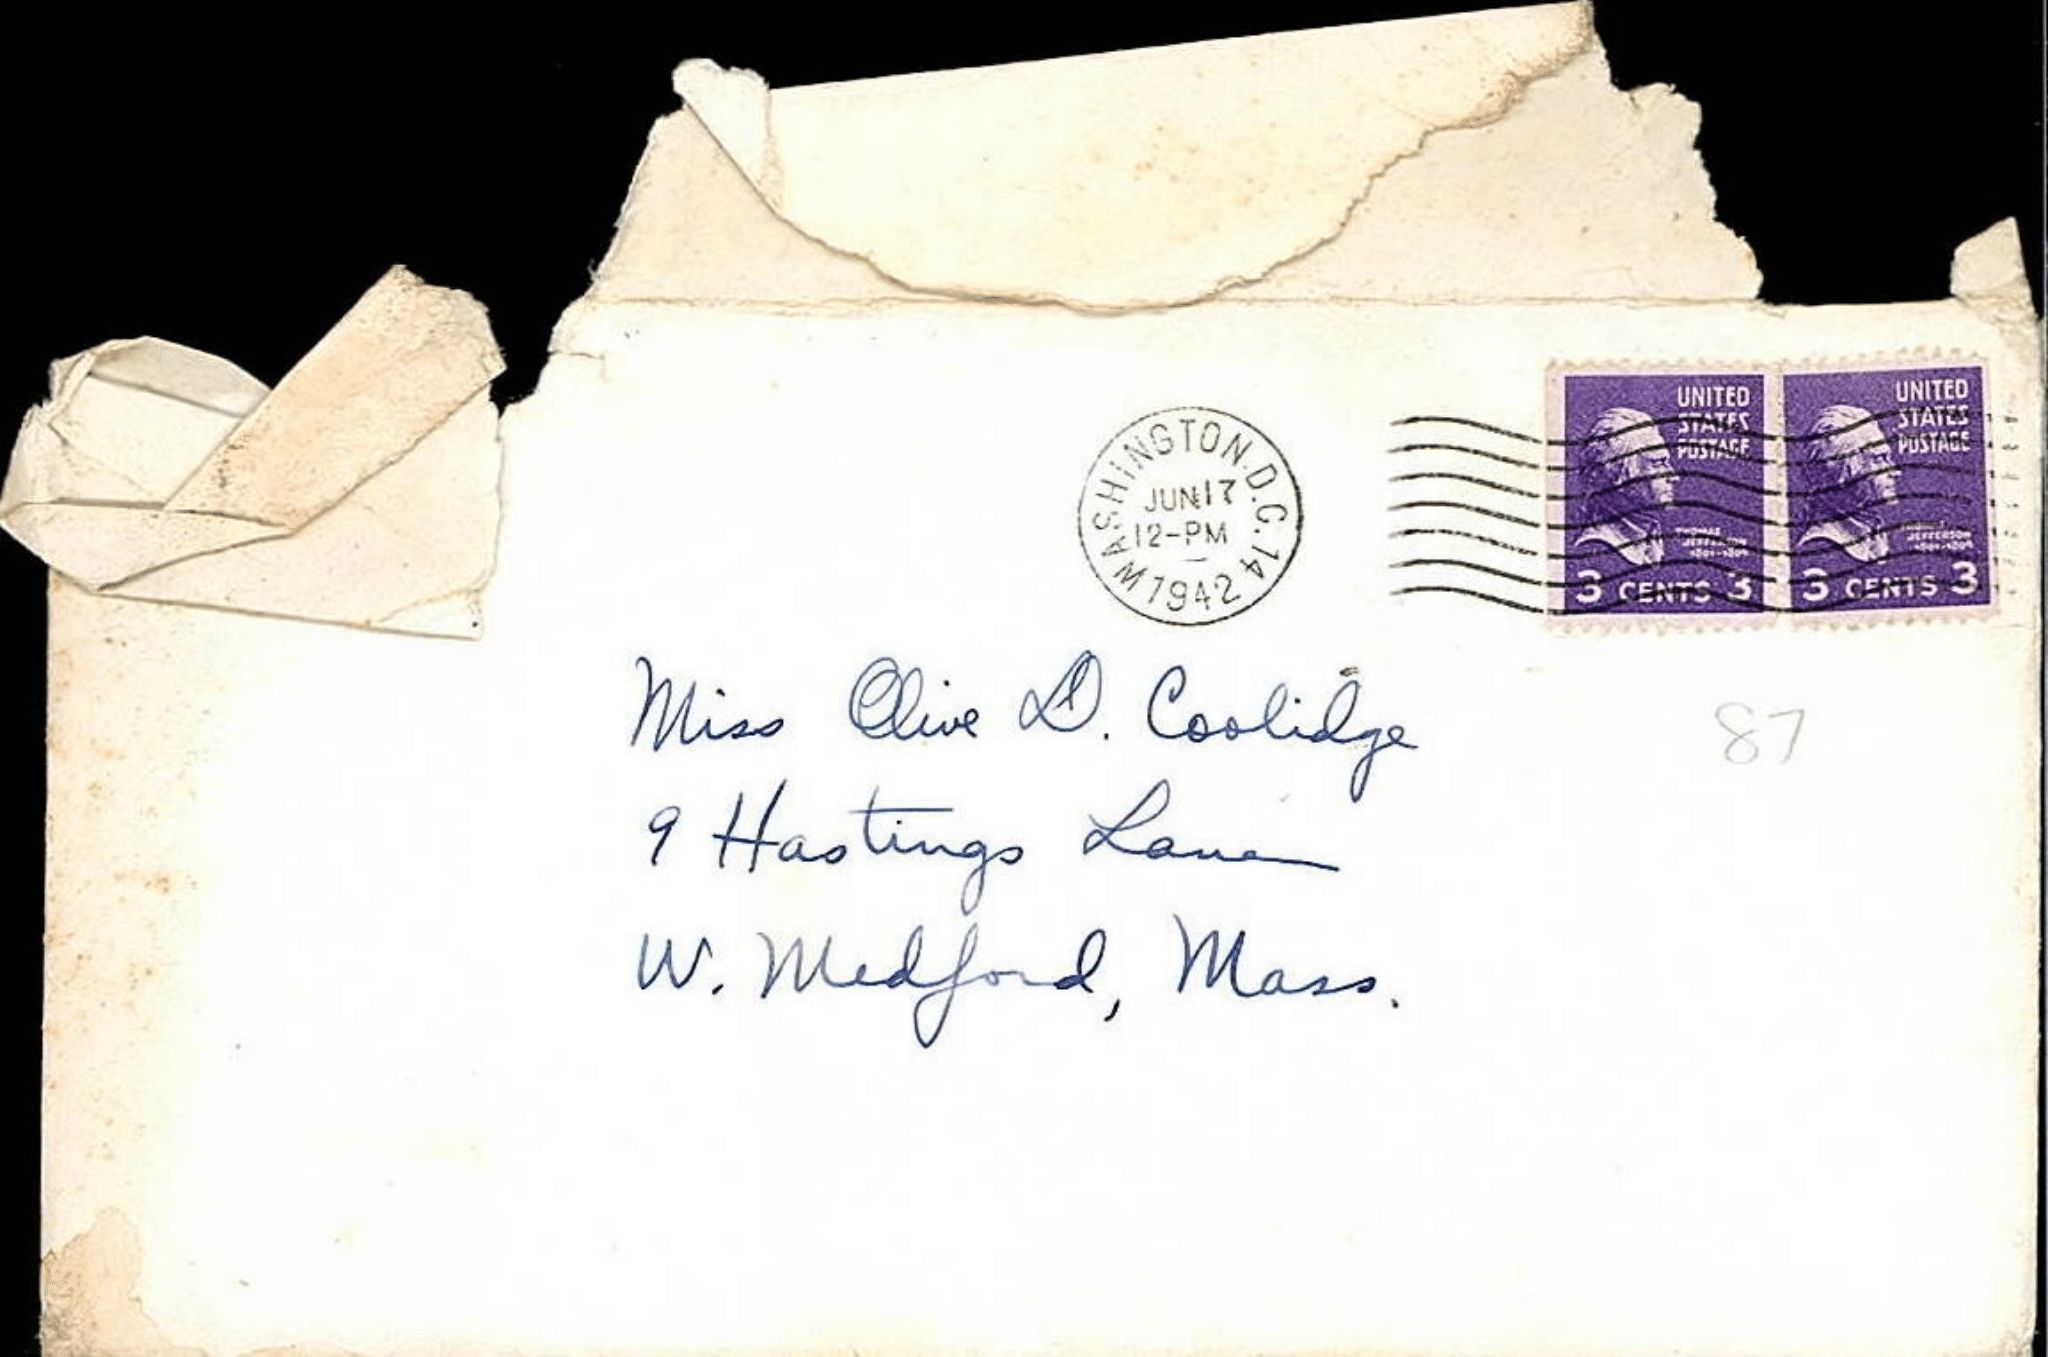 WASHINGTON, D.C. 14
JUN 17
12-PM
1942
UNITED
STATES
POSTAGE
THOMAS
JEFFERSON
1801-1809
3 CENTS 3
UNITED
STATES
POSTAGE
JEFFERSON
1801-1809
3 CENTS 3
Miss Olive D. Coolidge
87
9 Hastings Lane
W. Medford, Mass.